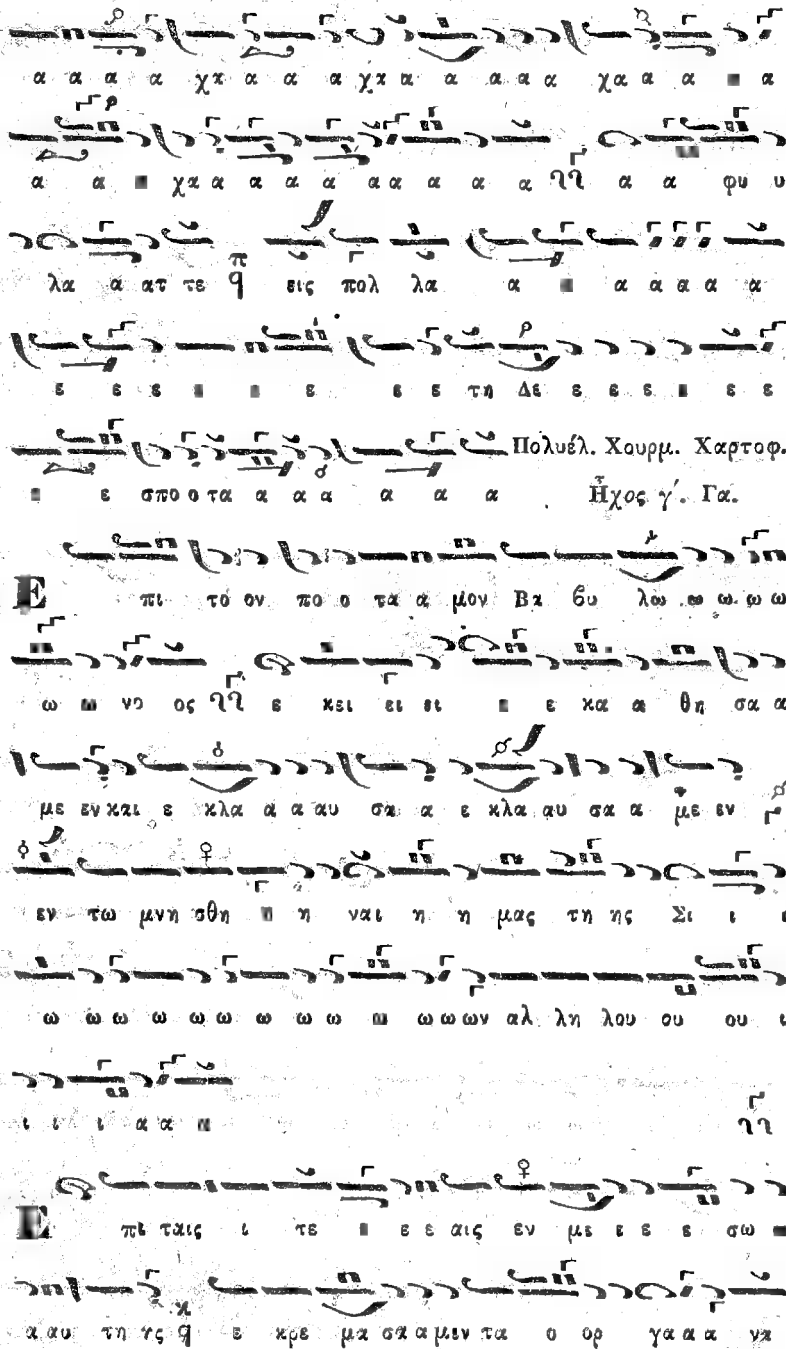 α α α α χα α α α χα α α α α α χα α α α α
α α α χα α α α α α α α α α α α φυ υ
λα α ατ τε εις πολ λα α α α α α α α
ε ε ε ε ε ε ε ε τη Δε ε ε ε ε ε ε ε
ε ε σπο ο τα α α α α α α Πολυέλ. Χουρμ. Χαρτοφ.
Ἦχος γ΄. Γα.
Ε πι το ον πο ο τα α μον Βα βυ λω ω ω ω ω
ω ω νο ος ε κει ει ει ε ε κα α θη σα α
με εν και ε κλα α α αυ σα α ε κλα αυ σα α με εν
εν τω μνη σθη η η ναι η η μας τη ης Σι ι ι
ω ω ω ω ω ω ω ω ω ω ω ω ων αλ λη λου ου ου ι
ι ι ι α α α
Ε πι ταις ι τε ε ε ε αις εν με ε ε ε ε σω
α αυ τη ης ε κρε μα σα α μεν τα ο ορ γα α α να